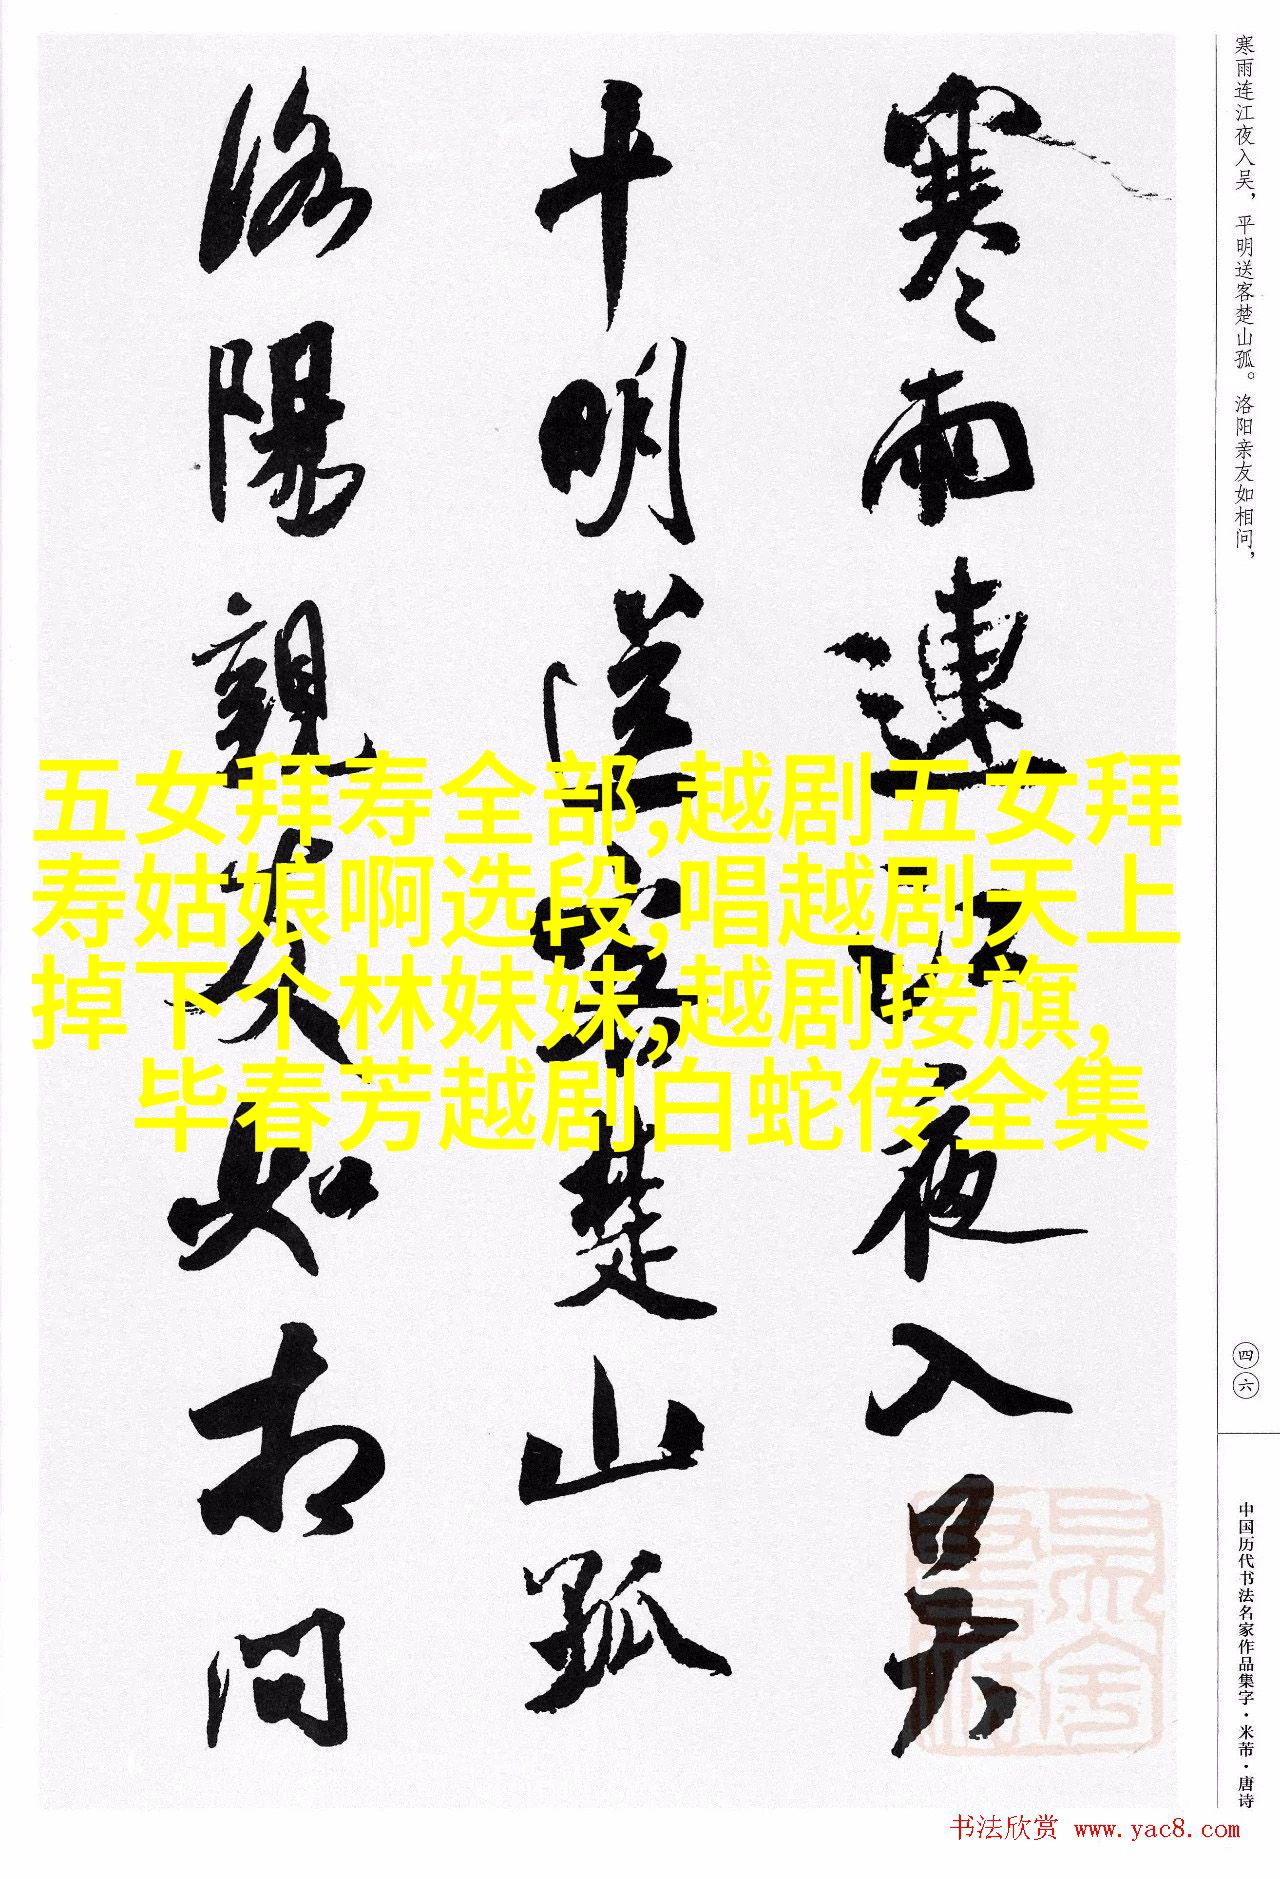 寒雨连江夜入吴，平明送客楚山孤。洛阳亲友如相问，
四六
中国历代书法名家作品集字·米芾·唐诗
寒雨連江夜入吴
平明送客楚山孤
洛陽親友如相问
五女拜寿全部,越剧五女拜
寿姑娘啊选段,唱越剧天上
掉下个林妹妹,越剧接旗,
毕春芳越剧白蛇传全集
书法欣赏 www.yac8.com